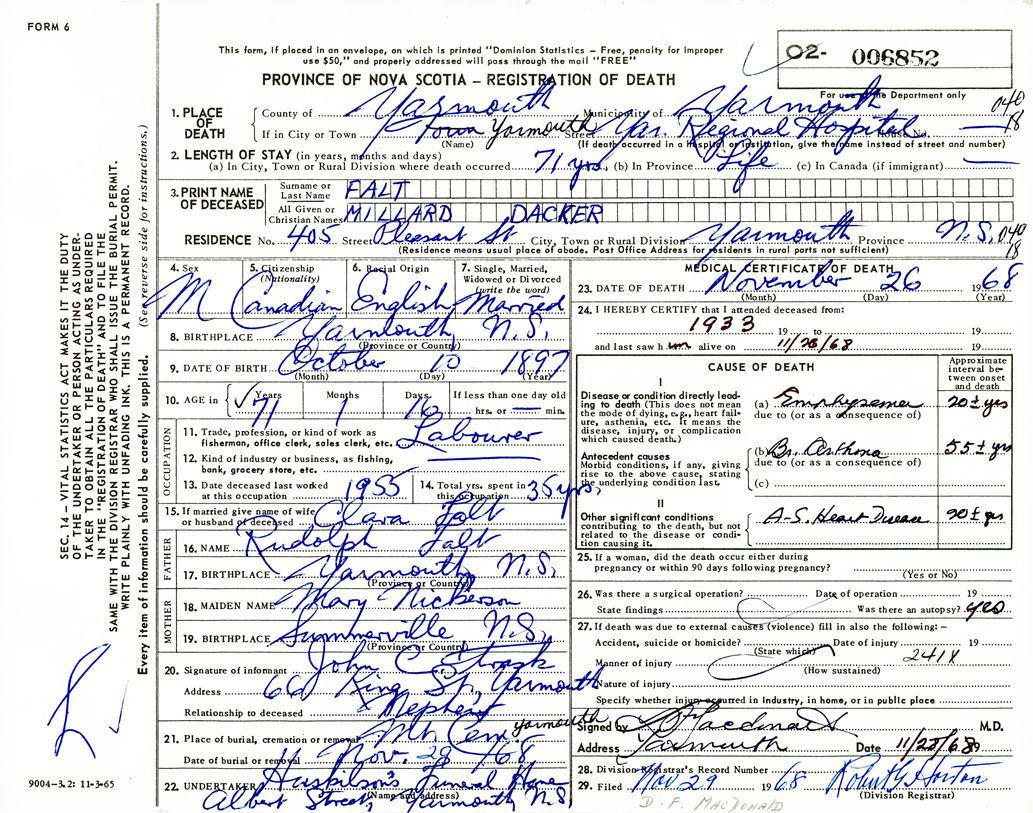 FORM 6
This form, if placed in an envelope, on which is printed "Dominion Statistics – Free, penalty for improper
use $50," and properly addressed will pass through the mail "FREE"
O2- 006852
For use of the Department only
PROVINCE OF NOVA SCOTIA – REGISTRATION OF DEATH
040
18
1. PLACE OF DEATH
County of Yarmouth Municipality of Yarmouth
If in City or Town Town Yarmouth Street Yar. Regional Hospital House No. —
(Name) (If death occurred in a hospital or institution, give the name instead of street and number)
2. LENGTH OF STAY (in years, months and days)
(a) In City, Town or Rural Division where death occurred 71 yrs. (b) In Province Life (c) In Canada (if immigrant) —
3. PRINT NAME OF DECEASED
Surname or Last Name FALT
All Given or Christian Names MILLARD DACKER
RESIDENCE No. 405 Street Pleasant St City, Town or Rural Division Yarmouth Province N.S. 040
18
(Residence means usual place of abode. Post Office Address for residents in rural parts not sufficient)
4. Sex M
5. Citizenship (Nationality) Canadian
6. Racial Origin English
7. Single, Married, Widowed or Divorced (write the word) Married
8. BIRTHPLACE Yarmouth, N.S.
(Province or Country)
9. DATE OF BIRTH October 10 1897
(Month) (Day) (Year)
10. AGE in Years 71 Months 1 Days 16 If less than one day old
hrs. or — min.
OCCUPATION
11. Trade, profession, or kind of work as
fisherman, office clerk, sales clerk, etc. Labourer
12. Kind of industry or business, as fishing,
bank, grocery store, etc.
13. Date deceased last worked
at this occupation 1955
14. Total yrs. spent in
this occupation 35 yrs.
15. If married give name of wife
or husband of deceased Clara Falt
FATHER
16. NAME Rudolph Falt
17. BIRTHPLACE Yarmouth, N.S.
(Province or Country)
MOTHER
18. MAIDEN NAME Mary Nickerson
19. BIRTHPLACE Summerville, N.S.
(Province or Country)
20. Signature of informant John C.
Address King St., Yarmouth
Relationship to deceased Nephew
21. Place of burial, cremation or removal Mt. Cem. Yarmouth
Date of burial or removal Nov. 28 /68
22. UNDERTAKER Huskilson's Funeral Home
(Name and address)
Albert Street, Yarmouth N.S.
MEDICAL CERTIFICATE OF DEATH
23. DATE OF DEATH November 26 1968
(Month) (Day) (Year)
24. I HEREBY CERTIFY that I attended deceased from:
1933 19 to 19
and last saw h im alive on 11/26/68 19
CAUSE OF DEATH
Approximate interval between onset and death
I
Disease or condition directly leading to death (This does not mean
the mode of dying, e.g., heart failure, asthenia, etc. It means the
disease, injury, or complication
which caused death.)
(a) Emphysema 20 ± yrs
due to (or as a consequence of)
Antecedent causes
Morbid conditions, if any, giving
rise to the above cause, stating
the underlying condition last.
(b) Br. Asthma 55 ± yrs
due to (or as a consequence of)
(c)
II
Other significant conditions
contributing to the death, but not
related to the disease or condition causing it.
A-S. Heart Disease ± yrs
25. If a woman, did the death occur either during
pregnancy or within 90 days following pregnancy?
(Yes or No)
26. Was there a surgical operation? Date of operation 19
State findings Was there an autopsy? yes
27. If death was due to external causes (violence) fill in also the following: –
Accident, suicide or homicide? Date of injury 19
(State which) 241X
Manner of injury
(How sustained)
Nature of injury
Specify whether injury occurred in industry, in home, or in public place
Signed by M.D.
Address Yarmouth Date
28. Division Registrar's Record Number
29. Filed Nov 29 1968 Robert G Horton
(Division Registrar)
D. F. MACDONALD
SEC. 14 – VITAL STATISTICS ACT MAKES IT THE DUTY
OF THE UNDERTAKER OR PERSON ACTING AS UNDERTAKER TO OBTAIN ALL THE PARTICULARS REQUIRED
IN THE "REGISTRATION OF DEATH" AND TO FILE THE
SAME WITH THE DIVISION REGISTRAR WHO SHALL ISSUE THE BURIAL PERMIT.
WRITE PLAINLY WITH UNFADING INK. THIS IS A PERMANENT RECORD.
Every item of information should be carefully supplied. (See reverse side for instructions.)
9004-3.2: 11-3-65